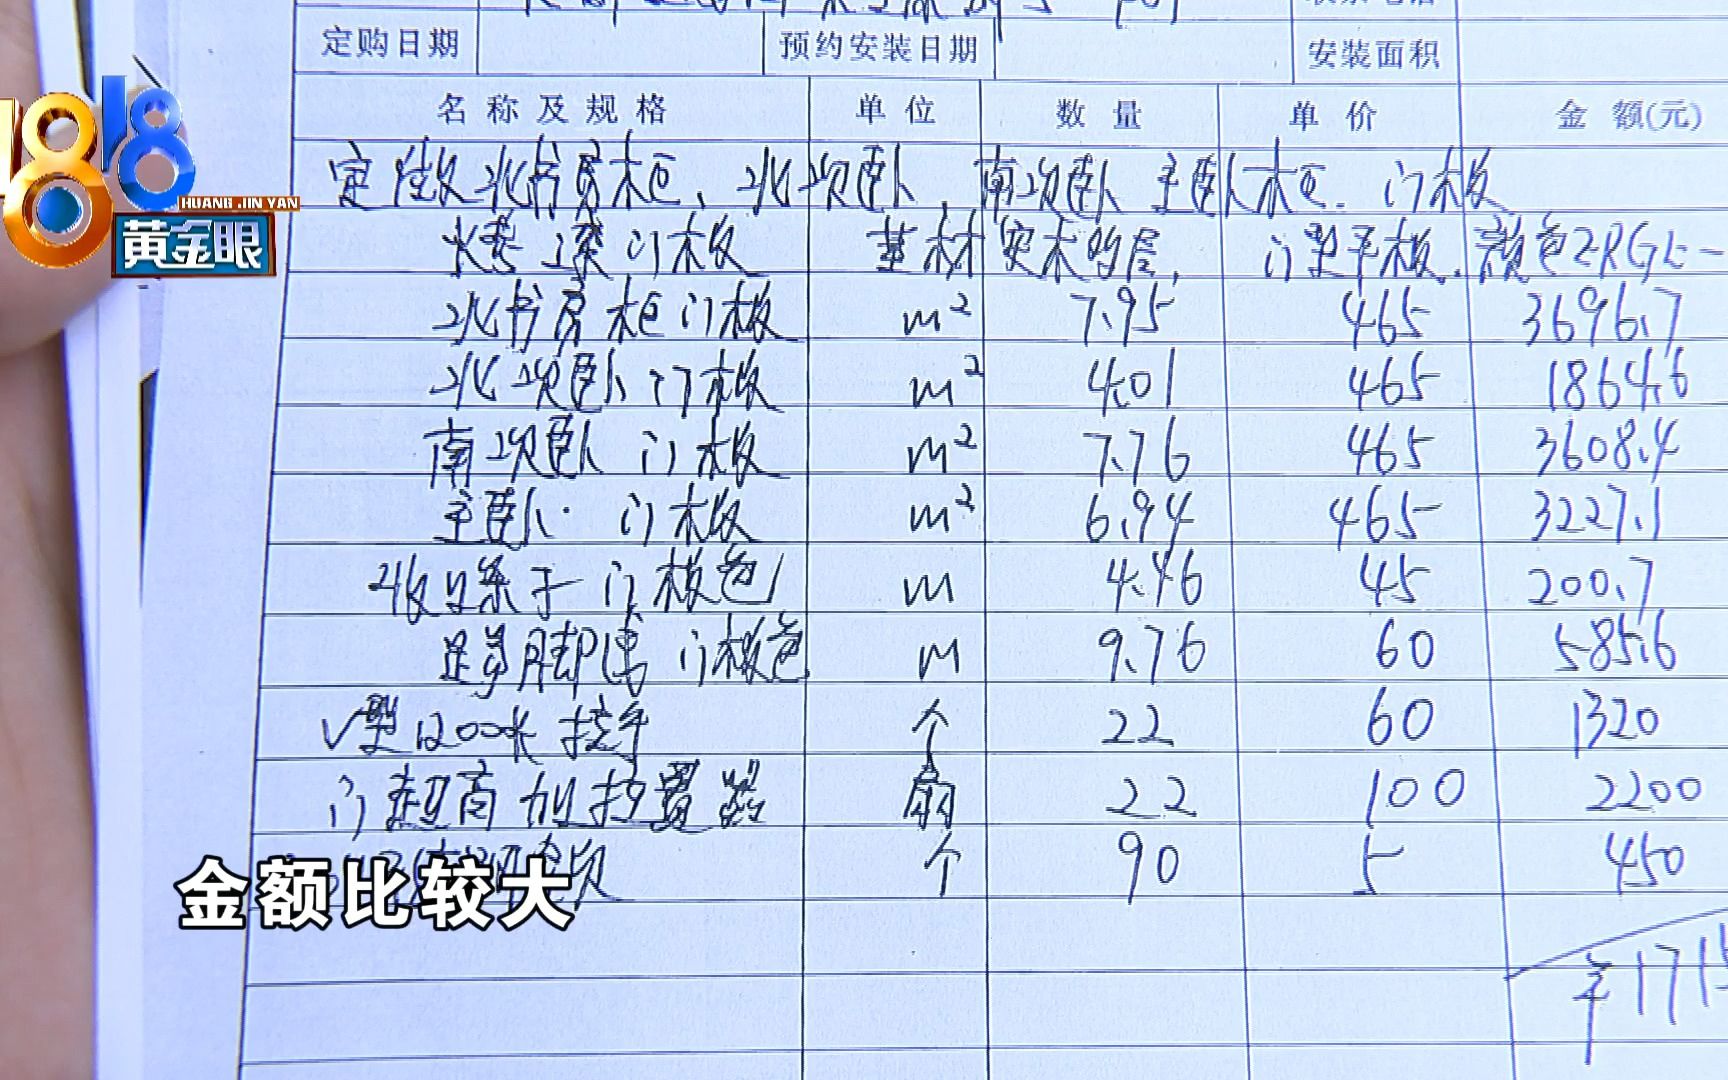 定购日期 预约安装日期 安装面积
名称及规格 单位 数量 单价 金额(元)
定做北书房柜、北次卧、南次卧 主卧柜. 门板
水性漆门板 基材实木多层, 门型平板. 颜色
北书房柜门板 m² 7.95 465 3696.7
北次卧门板 m² 4.01 465 1864.6
南次卧门板 m² 7.76 465 3608.4
主卧门板 m² 6.94 465 3227.1
收口条子门板色 m 4.46 45 200.7
踢脚 门板色 m 9.76 60 585.6
V型1200长拉手 个 22 60 1320
门超高加拉直器 扇 22 100 2200
个 90 5 450
¥171
1818
HUANG JIN YAN
黄金眼
金额比较大